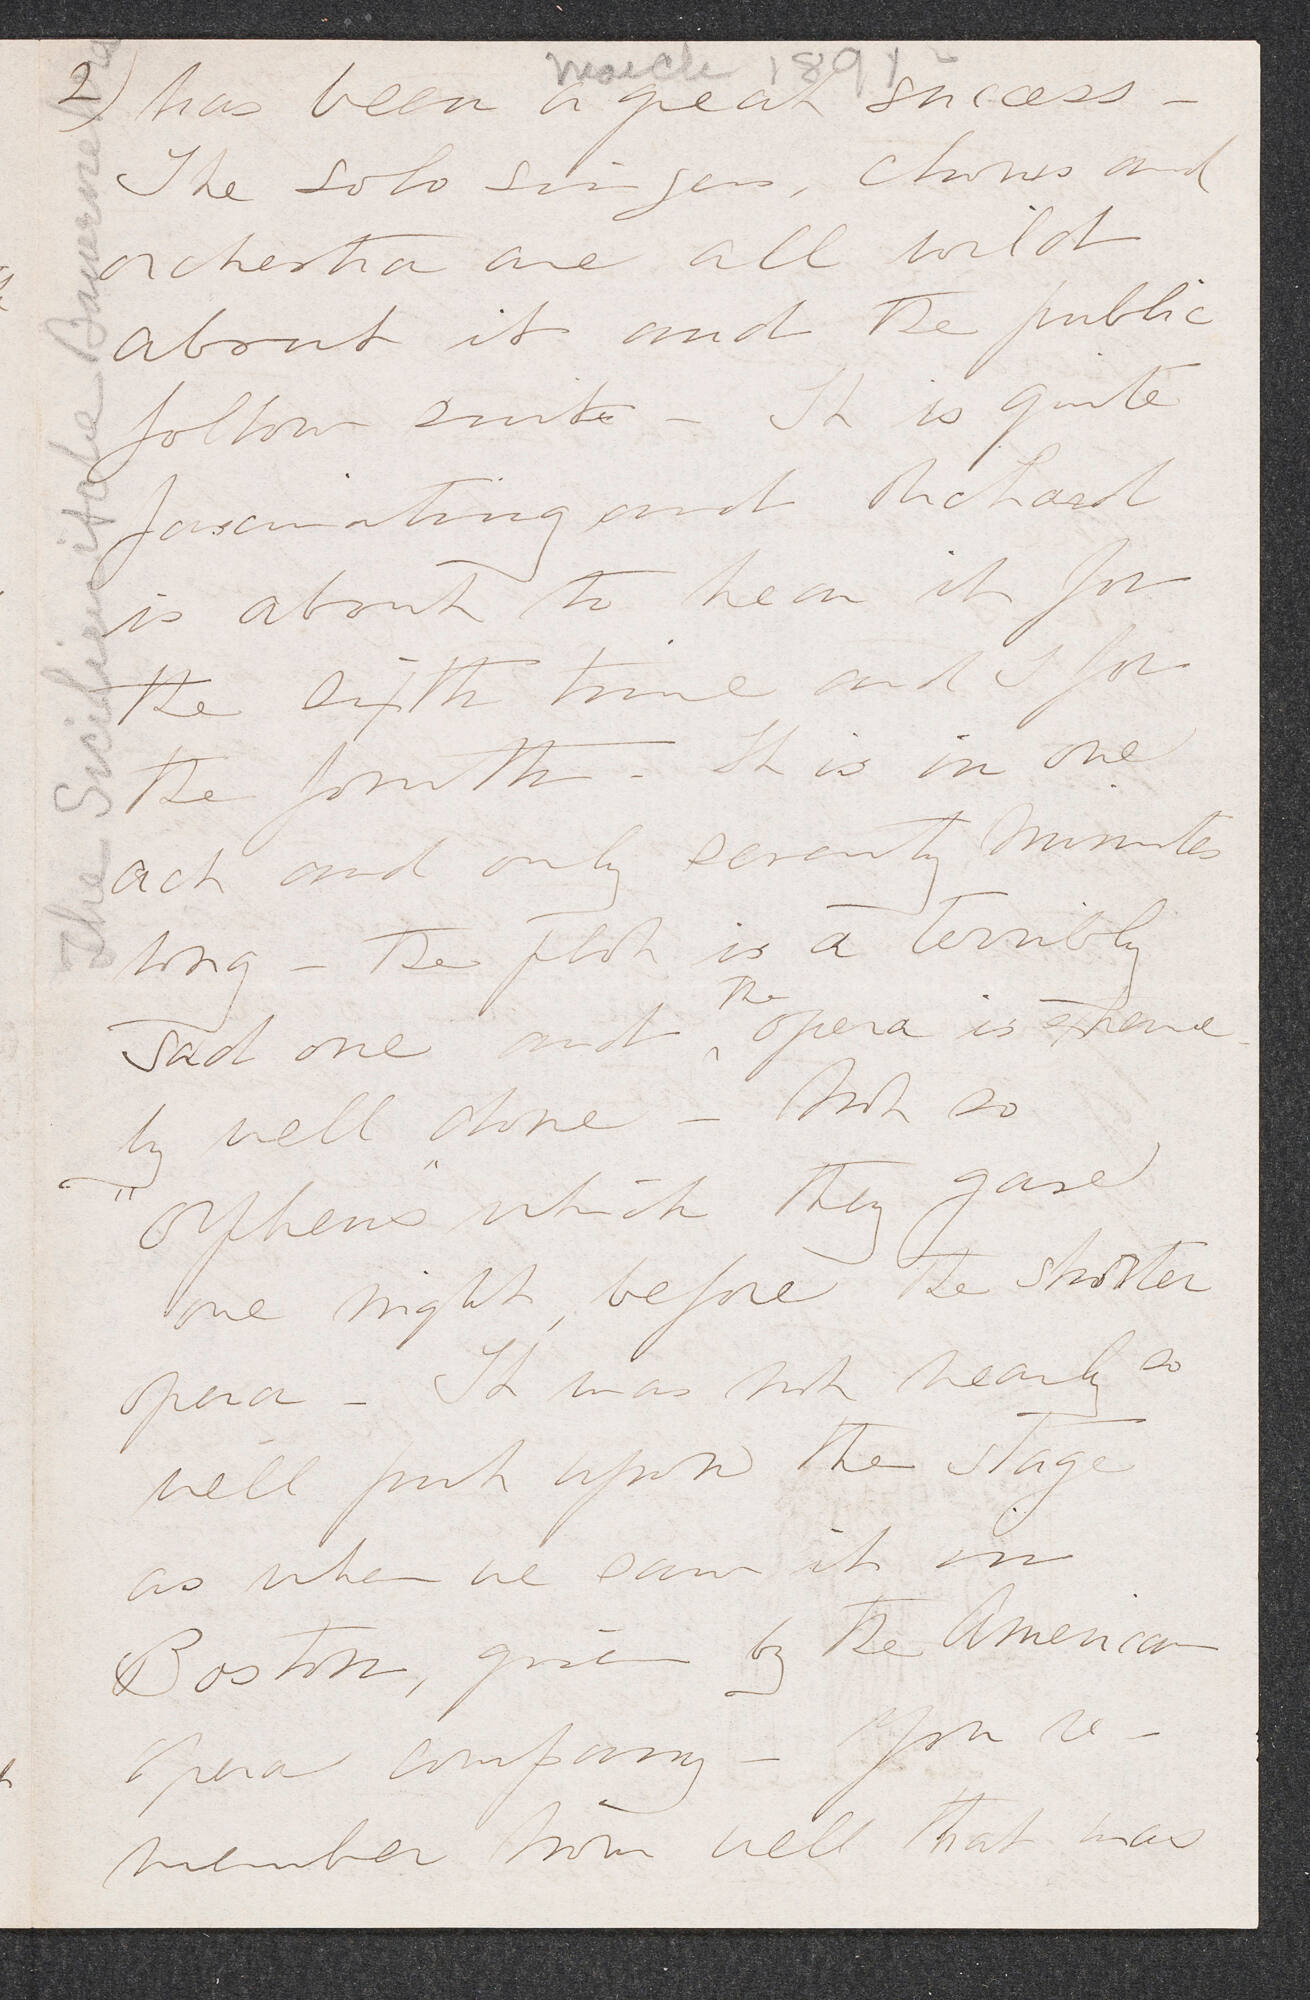 March 1891
2) has been a great success -
The solo singers, chorus and
orchestra are all wild
about it and the public
follow suite - It is quite
fascinating and Richard
is about to hear it for
the sixth time and I for
the fourth - It is in one
act and only seventy minutes
long - the plot is a terribly
sad one and the opera is extreme-
ly well done - Not so
"Orpheus" which they gave
one night, before the shorter
opera - It was not nearly so
well put upon the stage
as when we saw it in
Boston, given by the American
opera company - You re-
member how well that was
The Sicilienitabe Bauernehre